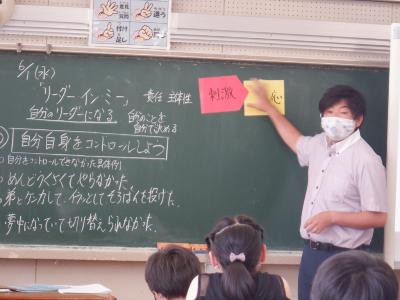 意見
質問
違う
付け
足し
6/1(水)
「リーダー・イン・ミー」 責任 主体性
自分のリーダーになる 自分のことを
自分で決める
自分自身をコントロールしよう
自分をコントロールできなかった具体例
めんどうくさくてやらなかった
弟とケンカして、イラッとしてそろばんを投げた。
夢中になっていて切り替えられなかった。
刺激